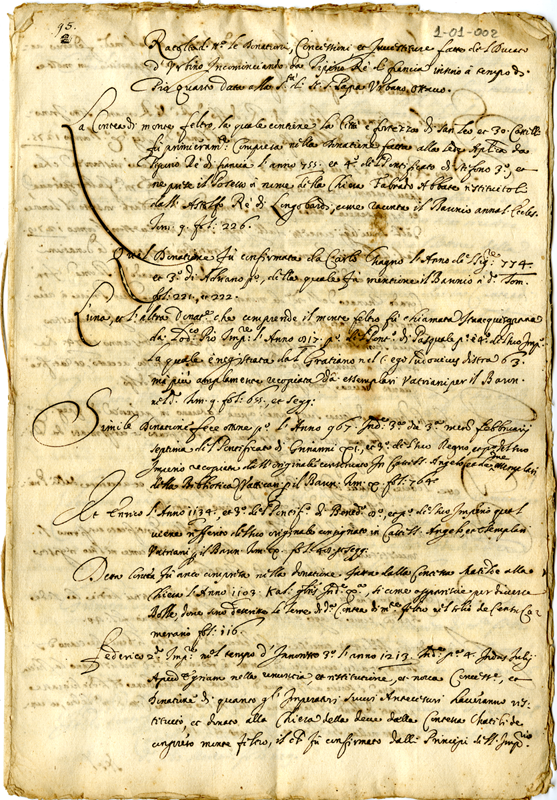 95.
2
1-01-002
Racolta di N.le Donationi, Concessioni et Investiture fatte del Ducato
d'Urbino Incominciando da Pipino Rè di francia insino à tempo di
Pio quarto data alla S.tà di N. S. Papa Urbano ottavo.
La Contea di monte feltro, la quale contiene la Città e fortezza di San Leo et 30 Castelli
fù primieram.te compresa nella Donatione fatta alla Sede Ap.lica da
Pipino Rè di francia l'anno 755. et 4.o del Pontificato di Stefano 3.o, et
ne prese il possesso à nome della Chiesa Fulrado Abbate
da Astolfo Rè di Longobardi, come racconta il Baronio annal. Eccles.
Tom. 9. fol. 226.
Qual Donatione fù confirmata da Carlo Magno l'Anno del Sig.re 774.
et 3.o di Adriano p.o, della quale fà mentione il Baronio a d.o Tom.
fol. 221. et 222.
L'una, et l'altra Donat.e che comprende il monte feltro fù chiamata
da Lod.co Pio Imp.re l'Anno 817. p.o Pont.o di Pasquale p.o et 4.o del suo Imp.o
la quale è registrata da Gratiano nel C. ego Ludovicus distra 63.
mà più amplamente recopiata dà essemplari Vaticani per il Baron.
Tom. 9. fol. 655. et segg.
Simile Donatione fece Ottone p.o l'Anno 967. Ind. 3.a da 3.a Februarij
septima del Pontificato di Giovanni XI, et 3.o del suo Regno
Imperio recopiata dall'originale conservato in Castel S. Angelo
della Bibliotheca Vaticana p il Baron. Tom. X. fol. 764.
Et Enrico l'Anno 1134. et 3.o del Pontif.o di Bened.o et p.o del suo Imperio
viene inserito dal suo originale in Castel S. Angelo et Essemplari
Vaticani, il Baron. Tom. X. fol. 48 et segg.
Detta Contea fù anco compresa nella donatione fatta dalla Contessa Matilde alla
Chiesa l'Anno 1103. Kal. Ind. X.a, si come apparisce per diverse
Bolle, dove sono descritte le Terre di d.a Contea di m.te feltro nel libro de Conti Ca-
merario fol. 116.
Federico 2.o Imp.re nel tempo d'Innocentio 3.o l'anno 1213. Ind. p.a 4. Idus Julij
Apud Egnium nella renuncia et restitutione, et nova Concess.e, et
Donatione di quanto gl'Imperatori suoi Antecessori havevano res-
tituito, et donato alla Chiesa della deve della Contessa Matilde
compreso monte feltro, il che fù confirmato dalli Principi dell'Imp.rio